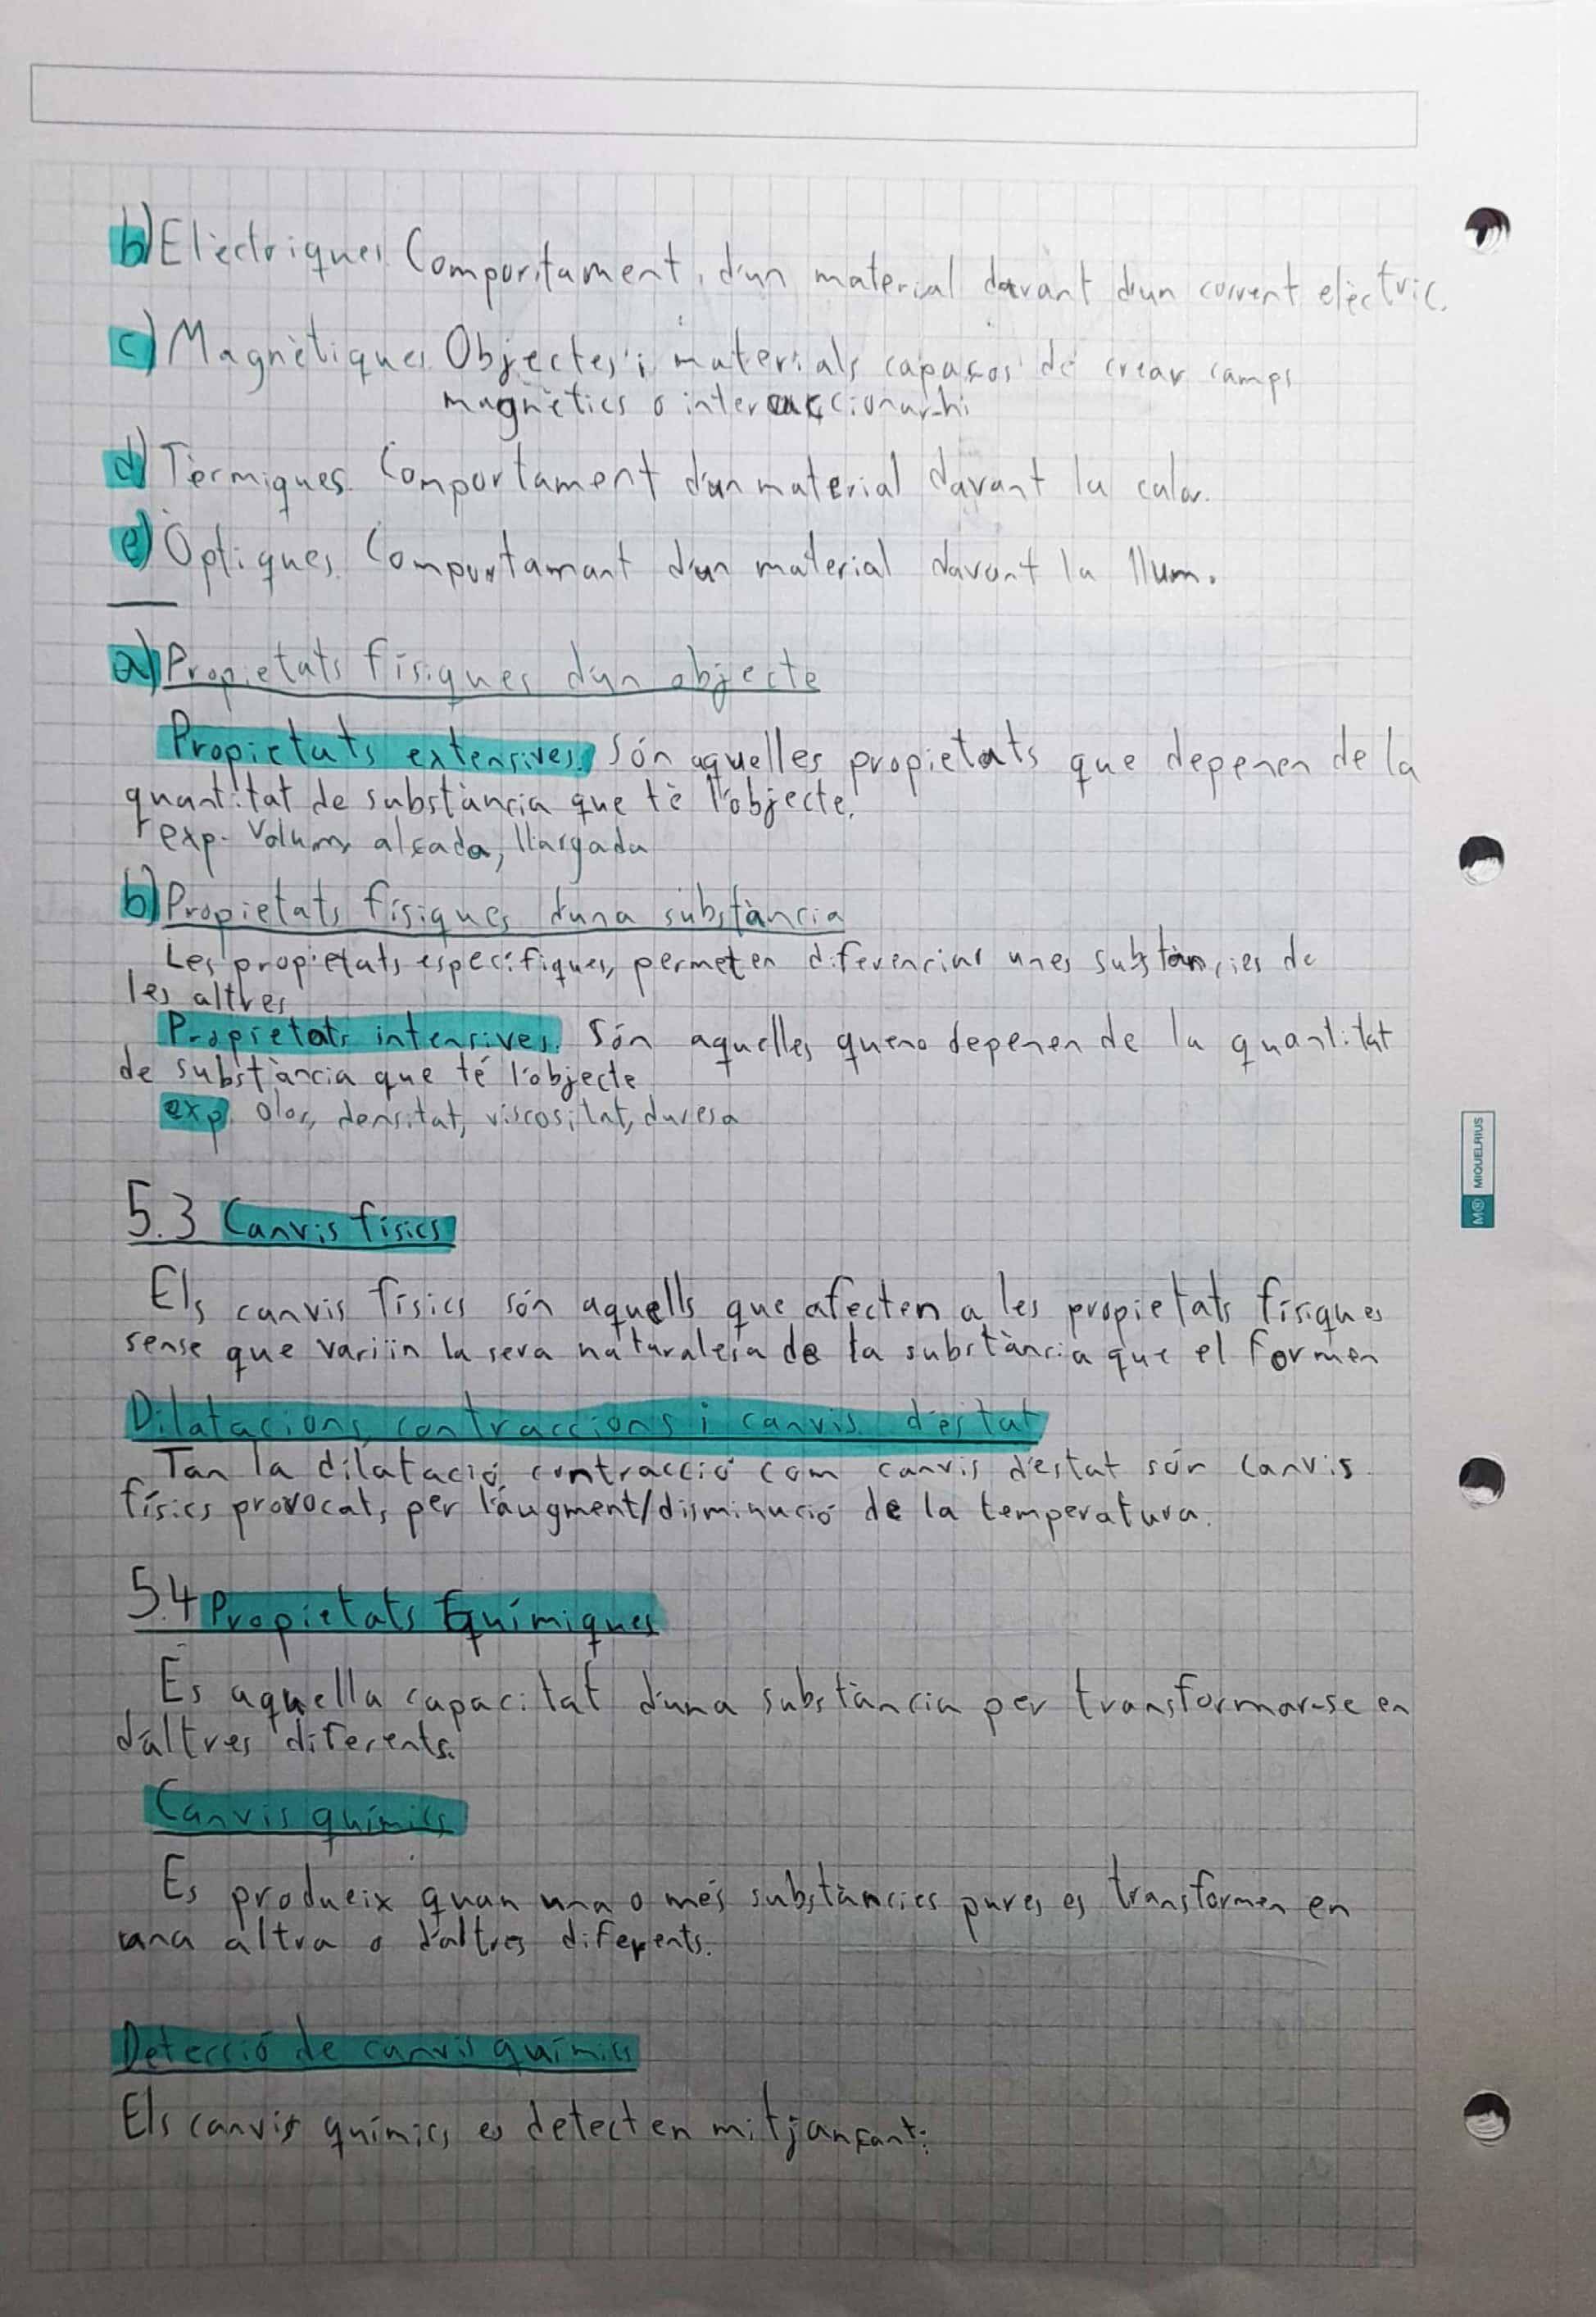 b) Elèctriques. Comportament d'un material davant d'un corrent elèctric.
c) Magnètiques. Objectes i materials capaços de crear camps
magnètics o interaccionar-hi
d) Tèrmiques. Comportament d'un material davant la calor.
e) Òptiques. Comportamant d'un material davant la llum.
a) Propietats físiques d'un objecte
Propietats extensives. Són aquelles propietats que depenen de la
quantitat de substància que tè l'objecte.
exp. Volum, alçada, llargada
b) Propietats físiques d'una substància
Les propietats específiques, permeten diferenciar unes substàncies de
les altres
Propietats intensives. Són aquelles que no depenen de la quantitat
de substància que té l'objecte
exp. olor, densitat, viscositat, duresa
5.3 Canvis físics
Els canvis físics són aquells que afecten a les propietats físiques
sense que variïn la seva naturalesa de la substància que el formen
Dilatacions, contraccions i canvis d'estat
Tan la dilatació, contracció com canvis d'estat són canvis
físics provocats per l'augment/disminució de la temperatura.
5.4 Propietats químiques
Es aquella capacitat d'una substància per transformar-se en
d'altres diferents.
Canvis químics
Es produeix quan una o més substàncies pures es transformen en
una altra o d'altres diferents.
Detecció de canvis químics
Els canvis químics es detecten mitjançant:
MIQUELRIUS